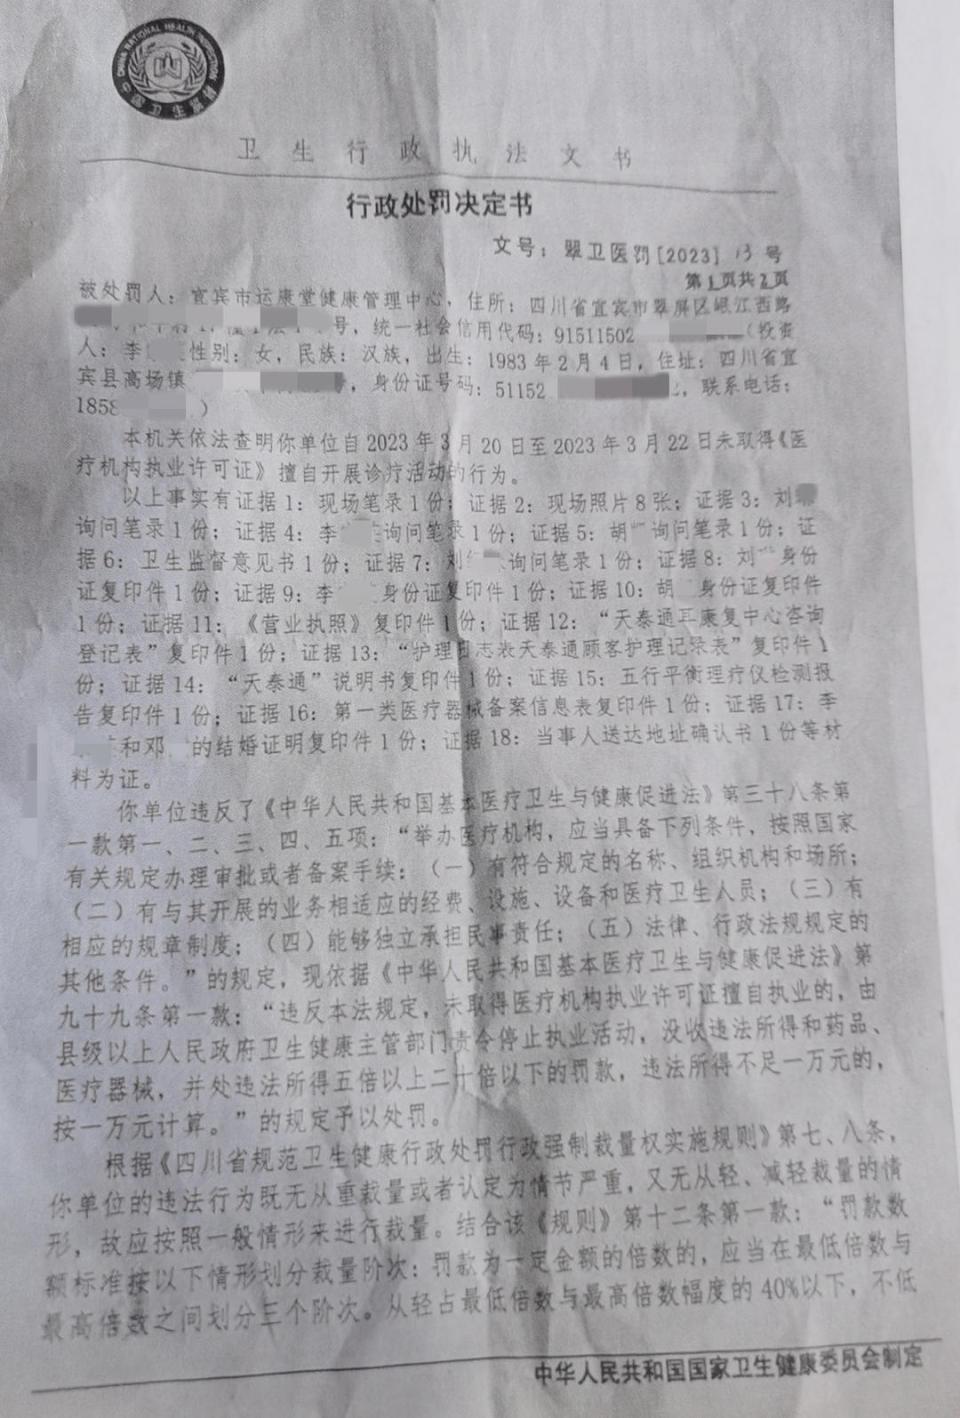 CHINA NATIONAL HEALTH INSPECTION
中国卫生监督
卫生行政执法文书
行政处罚决定书
文号：翠卫医罚[2023] 13 号
第1页共2页
被处罚人：宜宾市运康堂健康管理中心，住所：四川省宜宾市翠屏区岷江西路
号，统一社会信用代码：91511502 （投资
人：李 性别：女，民族：汉族，出生：1983 年 2 月 4 日，住址：四川省宜
宾县高场镇 ，身份证号码：51152 ，联系电话：
1858 ）
本机关依法查明你单位自 2023 年 3 月 20 日至 2023 年 3 月 22 日未取得《医
疗机构执业许可证》擅自开展诊疗活动的行为。
以上事实有证据 1：现场笔录 1 份；证据 2：现场照片 8 张；证据 3：刘
询问笔录 1 份；证据 4：李 询问笔录 1 份；证据 5：胡 询问笔录 1 份；证
据 6：卫生监督意见书 1 份；证据 7：刘 询问笔录 1 份；证据 8：刘 身份
证复印件 1 份；证据 9：李 身份证复印件 1 份；证据 10：胡 身份证复印件
1 份；证据 11：《营业执照》复印件 1 份；证据 12：“天泰通耳康复中心咨询
登记表”复印件 1 份；证据 13：“护理日志表天泰通顾客护理记录表”复印件 1
份；证据 14：“天泰通”说明书复印件 1 份；证据 15：五行平衡理疗仪检测报
告复印件 1 份；证据 16：第一类医疗器械备案信息表复印件 1 份；证据 17：李
和邓 的结婚证明复印件 1 份；证据 18：当事人送达地址确认书 1 份等材
料为证。
你单位违反了《中华人民共和国基本医疗卫生与健康促进法》第三十八条第
一款第一、二、三、四、五项：“举办医疗机构，应当具备下列条件，按照国家
有关规定办理审批或者备案手续：（一）有符合规定的名称、组织机构和场所；
（二）有与其开展的业务相适应的经费、设施、设备和医疗卫生人员；（三）有
相应的规章制度；（四）能够独立承担民事责任；（五）法律、行政法规规定的
其他条件。”的规定，现依据《中华人民共和国基本医疗卫生与健康促进法》第
九十九条第一款：“违反本法规定，未取得医疗机构执业许可证擅自执业的，由
县级以上人民政府卫生健康主管部门责令停止执业活动，没收违法所得和药品、
医疗器械，并处违法所得五倍以上二十倍以下的罚款，违法所得不足一万元的，
按一万元计算。”的规定予以处罚。
根据《四川省规范卫生健康行政处罚行政强制裁量权实施规则》第七、八条，
你单位的违法行为既无从重裁量或者认定为情节严重，又无从轻、减轻裁量的情
形，故应按照一般情形来进行裁量。结合该《规则》第十二条第一款：“罚款数
额标准按以下情形划分裁量阶次：罚款为一定金额的倍数的，应当在最低倍数与
最高倍数之间划分三个阶次。从轻占最低倍数与最高倍数幅度的 40%以下，不低
中华人民共和国国家卫生健康委员会制定